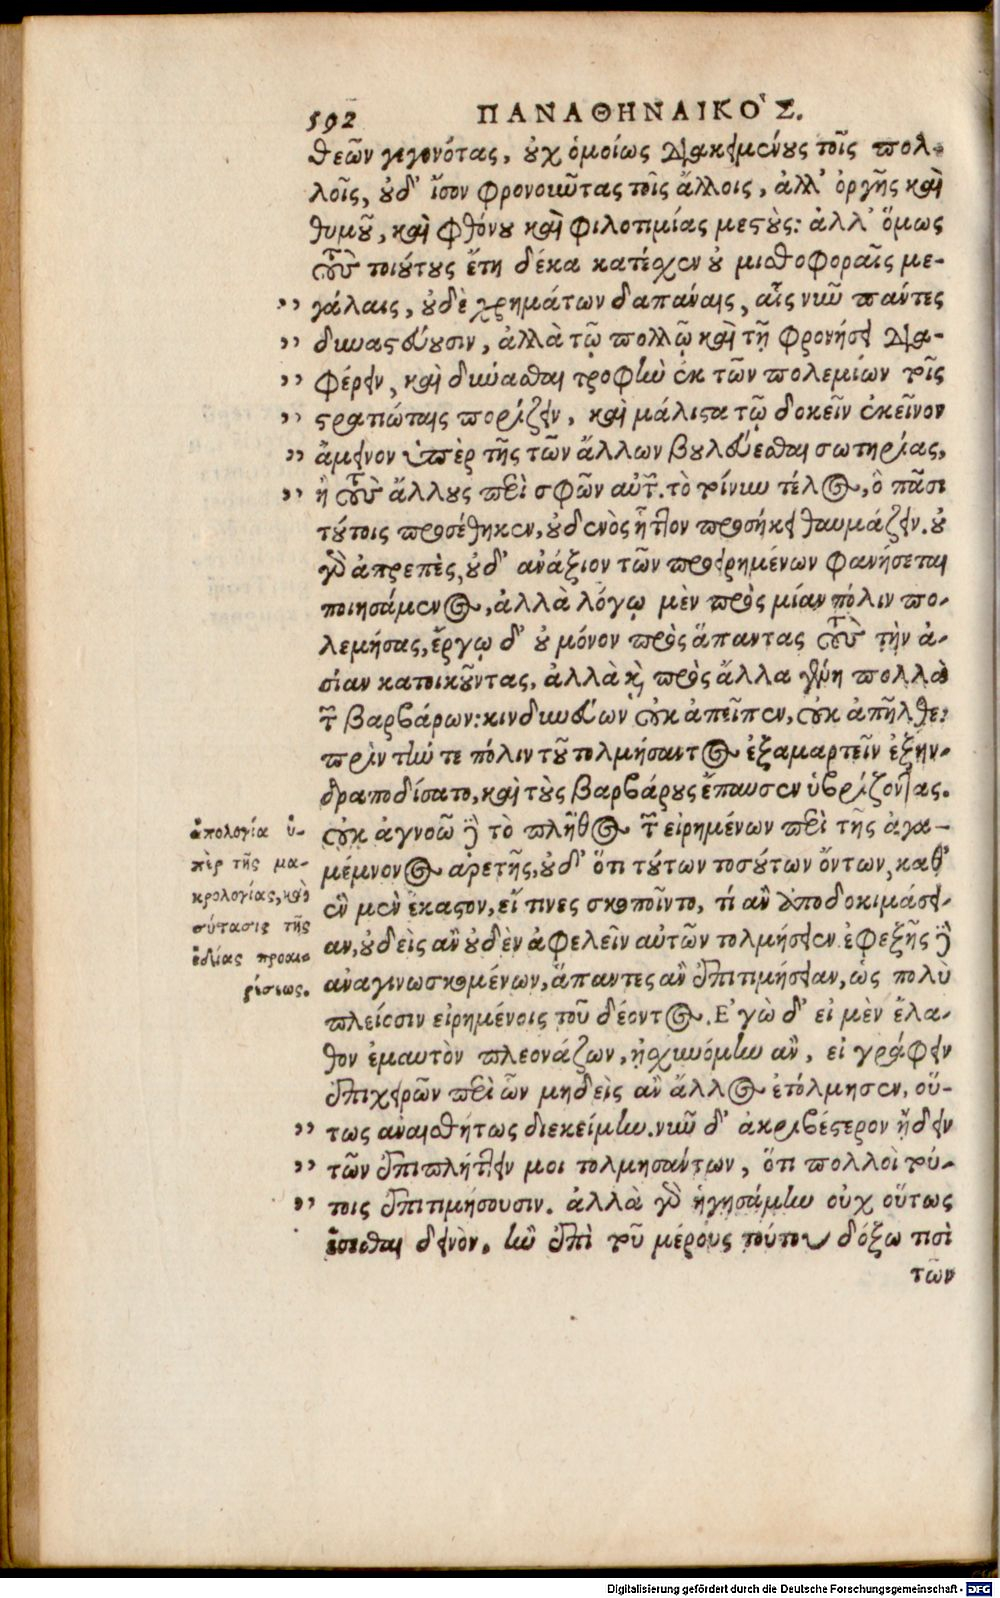 592 ΠΑΝΑΘΗΝΑΙΚΟ῍Σ.
θεῶν γεγονότας, οὐχ ὁμοίως διακειμένους τοῖς πολ-
λοῖς, οὐδ' ἴσον φρονοιῶτας τοῖς ἄλλοις, ἀλλ' ὀργῆς καὶ
θυμοῦ, καὶ φθόνου καὶ φιλοτιμίας μεστούς: ἀλλ' ὅμως
τοὺς τοιούτους ἔτη δέκα κατέχεν οὐ μισθοφοραῖς με-
γάλαις, οὐδὲ χρημάτων δαπάναις, αἷς νῦν πάντες
δυναστεύουσιν, ἀλλὰ τῷ πολλῷ καὶ τῇ φρονήσει δια-
φέρειν, καὶ δύνασθαι τροφὴν ἐκ τῶν πολεμίων τοῖς
στρατιώταις πορίζειν, καὶ μάλιστα τῷ δοκεῖν ἐκεῖνον
ἄμεινον ὑπὲρ τῆς τῶν ἄλλων βουλεύεσθαι σωτηρίας,
ἢ τοὺς ἄλλους περὶ σφῶν αὐτῶν. τὸ τοίνυν τέλος, ὃ πᾶσι
τούτοις προσέθηκεν, οὐδενὸς ἧττον προσήκει θαυμάζειν. οὐ
γὰρ ἀπρεπὲς, οὐδ' ἀνάξιον τῶν προειρημένων φανήσεται
ποιησάμενος, ἀλλὰ λόγῳ μὲν πρὸς μίαν πόλιν πο-
λεμήσας, ἔργῳ δ' οὐ μόνον πρὸς ἅπαντας τοὺς τὴν ἀ-
σίαν κατοικοῦντας, ἀλλὰ καὶ πρὸς ἄλλα γένη πολλὰ
τῶν βαρβάρων: κινδυνεύων οὐκ ἀπεῖπεν, οὐκ ἀπῆλθε:
πρὶν τήν τε πόλιν τοῦ τολμήσαντος ἐξαμαρτεῖν ἐξην-
δραποδίσατο, καὶ τοὺς βαρβάρους ἔπαυσεν ὑβρίζοντας.
οὐκ ἀγνοῶ δὲ τὸ πλῆθος τῶν εἰρημένων περὶ τῆς ἀγα-
μέμνονος ἀρετῆς, οὐδ' ὅτι τούτων τοσούτων ὄντων, καθ'
ἓν μὲν ἕκαστον, εἴ τινες σκοποῖντο, τί ἂν ἀποδοκιμάσει-
αν, οὐδεὶς ἂν οὐδὲν ἀφελεῖν αὐτῶν τολμήσειεν. ἐφεξῆς δὲ
ἀναγινωσκομένων, ἅπαντες ἂν ἐπιτιμήσειαν, ὡς πολὺ
πλείοσιν εἰρημένοις τοῦ δέοντος. Ε᾽γὼ δ' εἰ μὲν ἔλα-
θον ἐμαυτὸν πλεονάζων, ᾐσχυνόμην ἂν, εἰ γράφειν
ἐπιχειρῶν περὶ ὧν μηδεὶς ἂν ἄλλος ἐτόλμησεν, οὕ-
τως ἀναισθήτως διεκείμην. νῦν δ' ἀκριβέστερον ᾔδειν
τῶν ἐπιπλήττειν μοι τολμησάντων, ὅτι πολλοὶ τού-
τοις ἐπιτιμήσουσιν. ἀλλὰ γὰρ ἡγησάμην οὐχ οὕτως
ἔσεσθαι δεινὸν, ἢν ἐπὶ τοῦ μέρους τούτου δόξω τισὶ
τῶν
ἀπολογία ὑ-
πὲρ τῆς μα-
κρολογίας, καὶ
σύστασις τῆς
ἰδίας προαι-
ρέσεως.
Digitalisierung gefördert durch die Deutsche Forschungsgemeinschaft - DFG